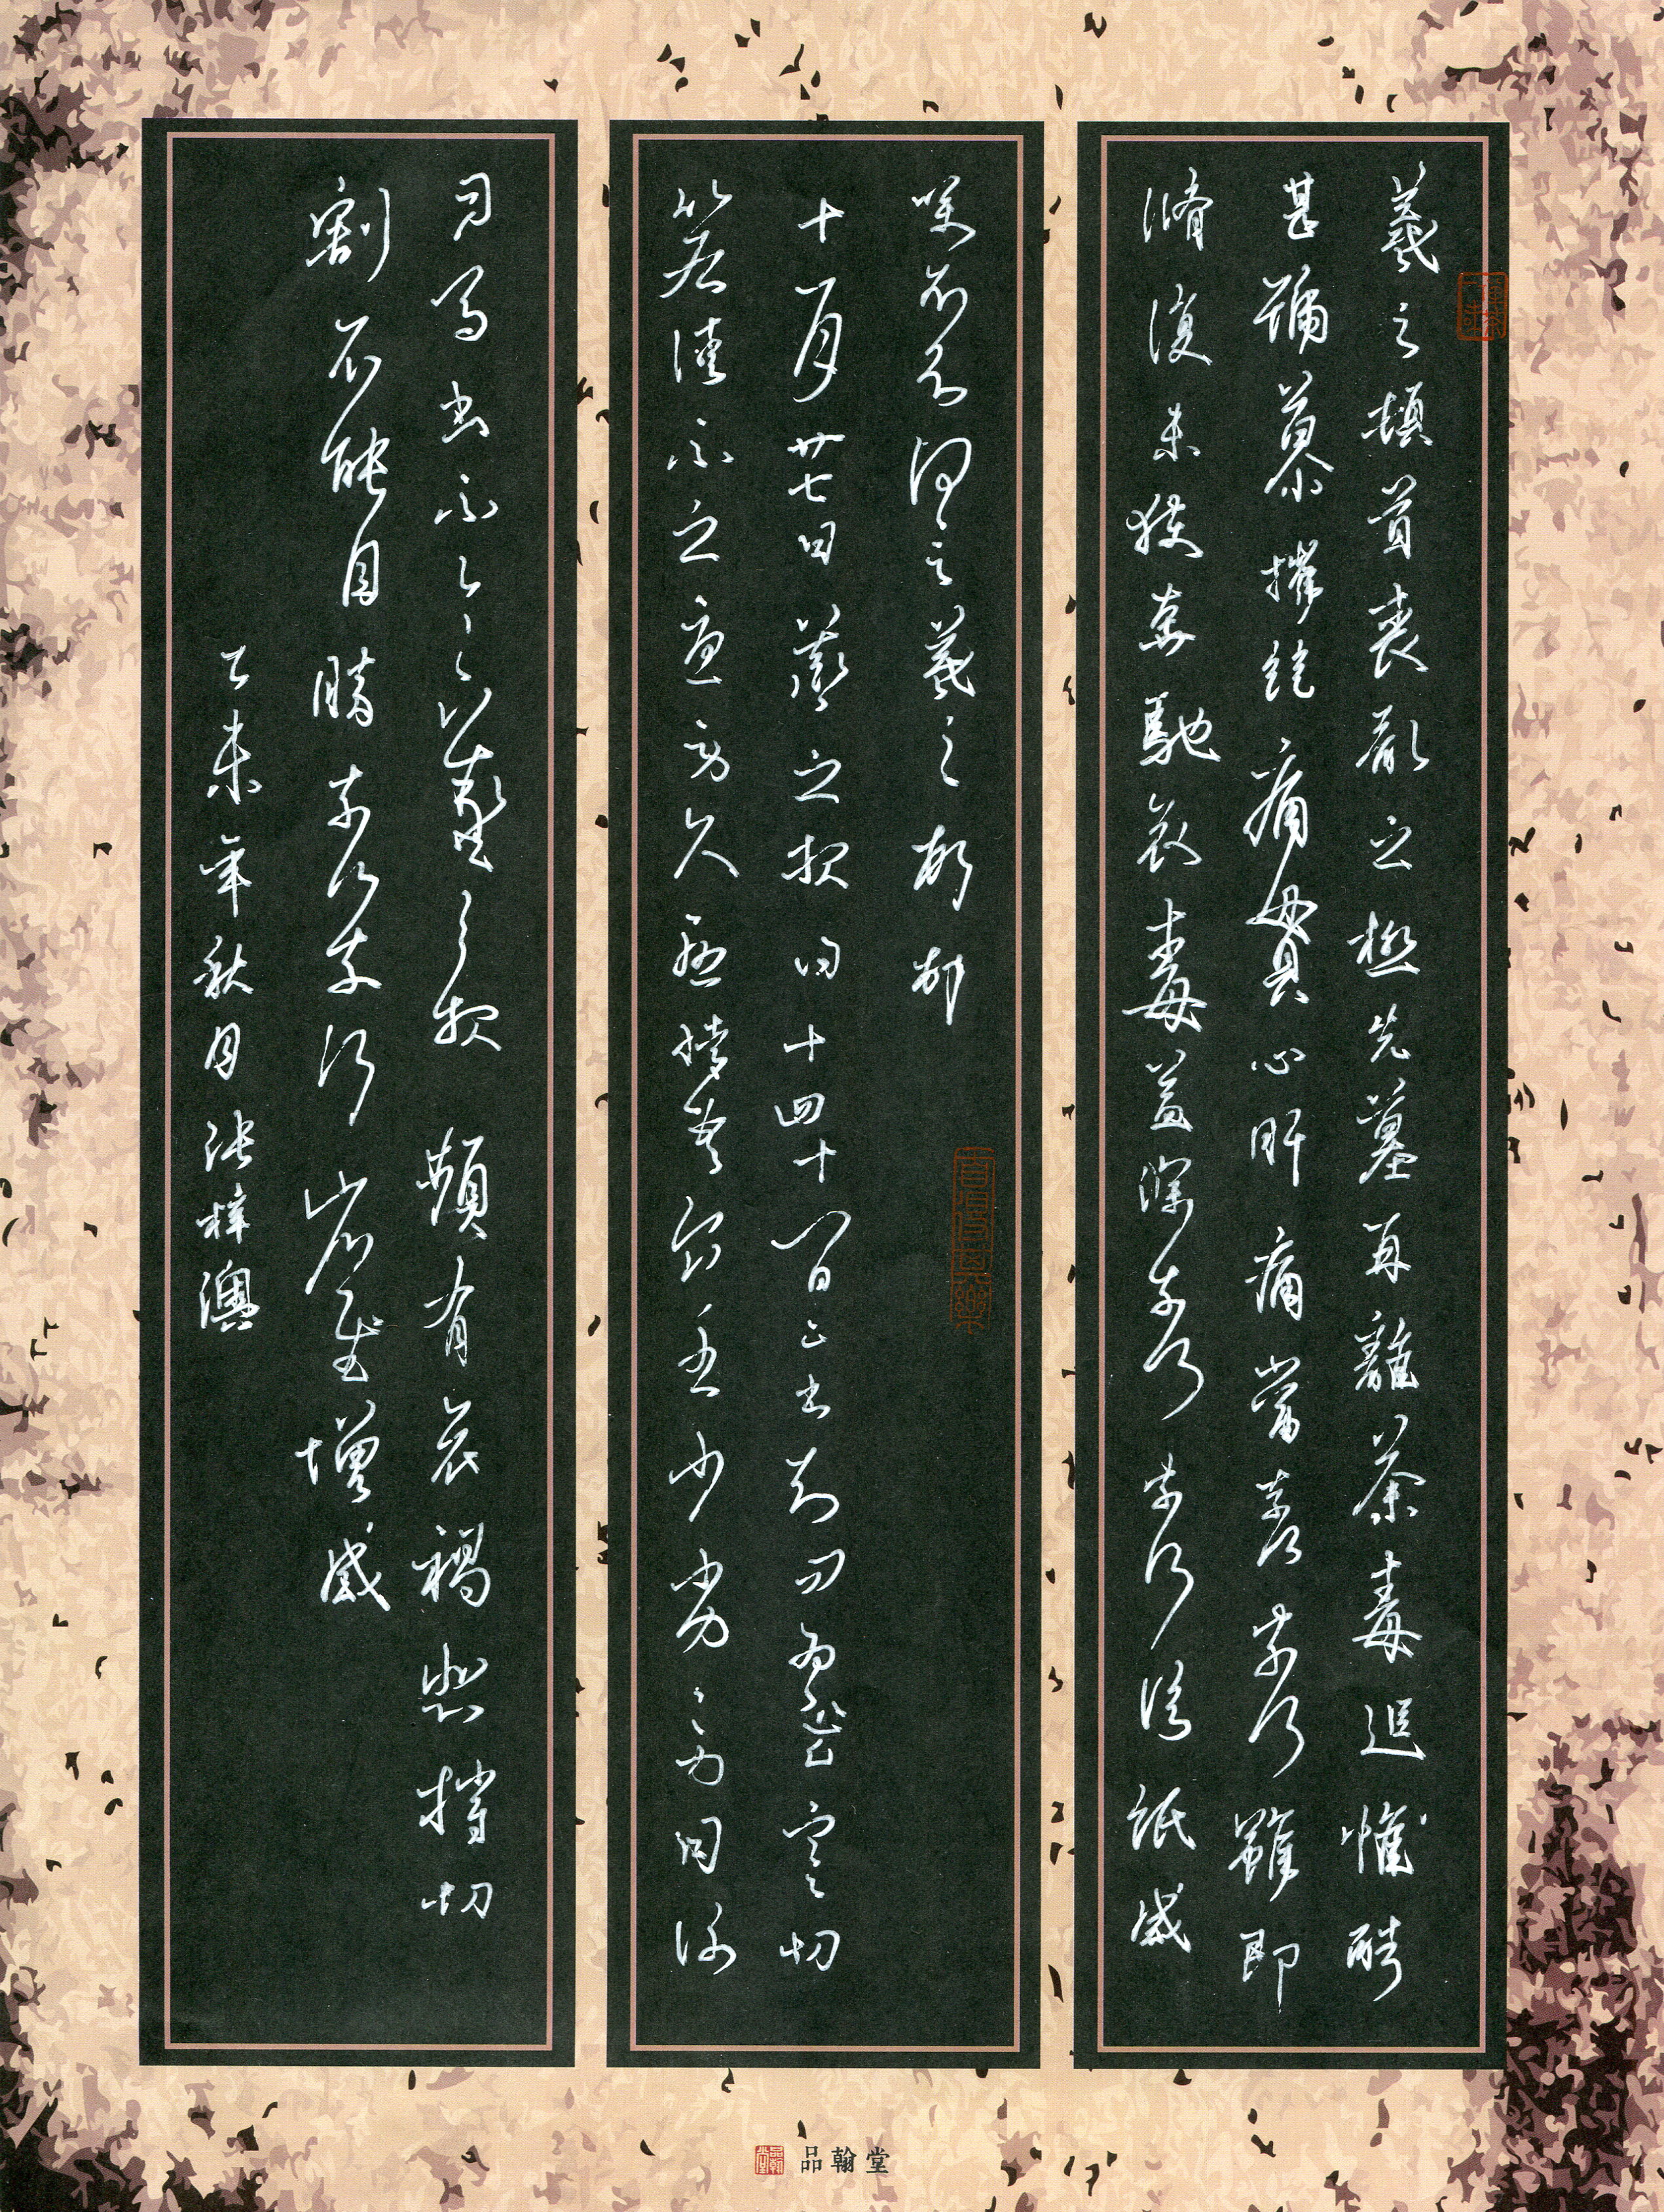 羲之頓首喪亂之極先墓再離荼毒追惟酷
甚號慕摧絕痛貫心肝痛當奈何奈何雖即
脩復未獲奔馳哀毒益深奈何奈何臨紙感
哽不知何言羲之頓首
十一月廿七日羲之報得十四十八日二書知問為慰寒切
比各佳不念憂勞久懸情吾食至少劣劣力因謝
司馬書不羲之報頻有哀禍悲摧切
割不能自勝奈何奈何省慰增感
乙未年秋月張梓澳
品翰堂